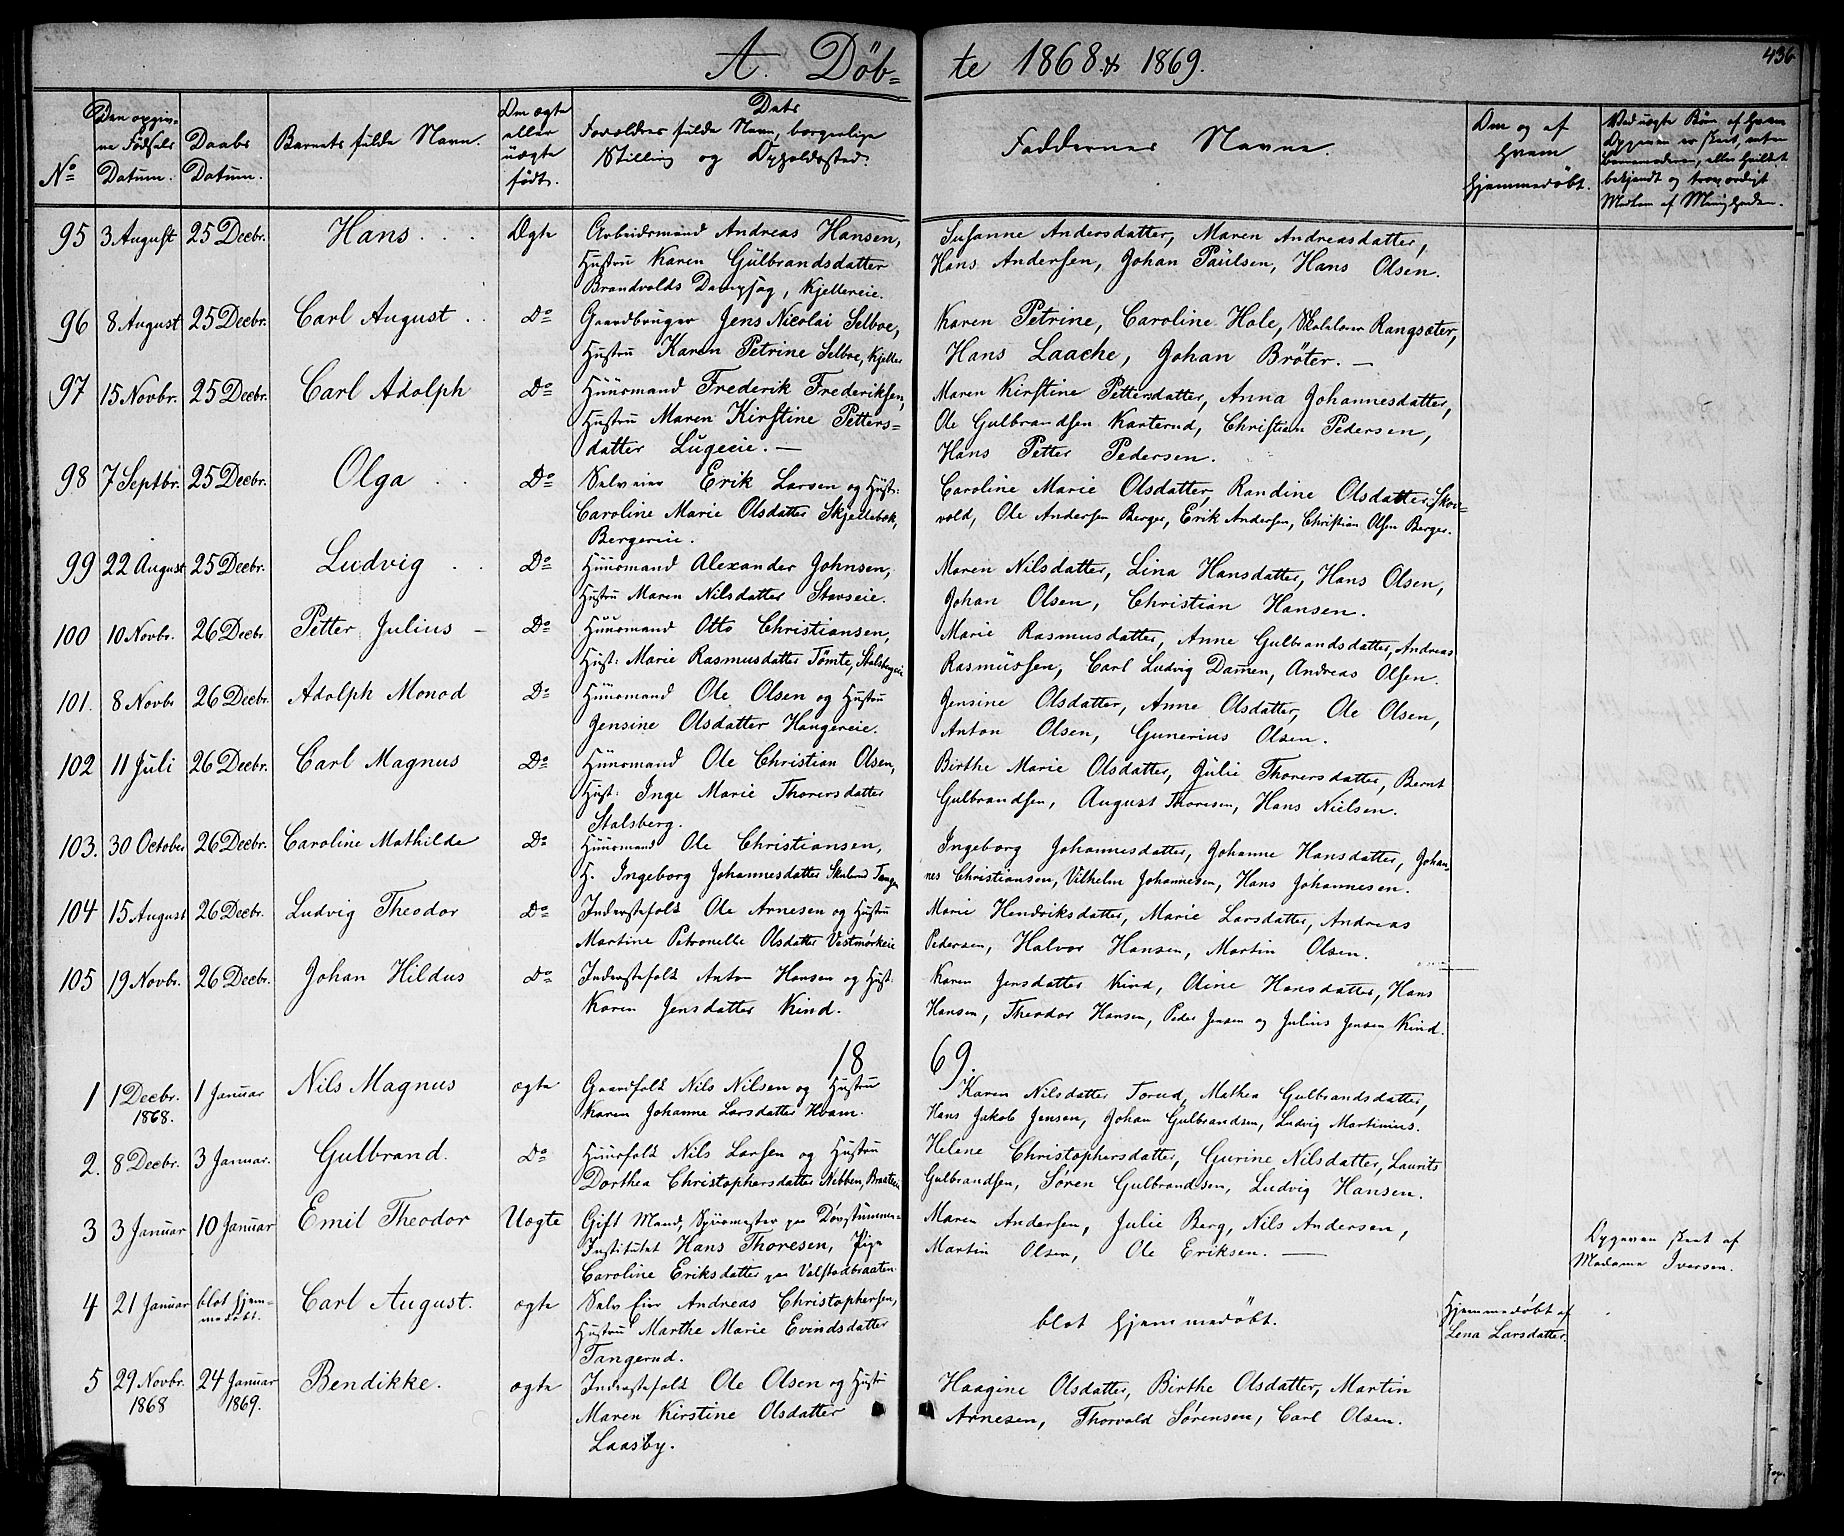 A. Döb= te 1868 & 1869.
436
No
Den opgiv=
ne Fødsels
Datum.
Daabs
Datum.
Barnets fulde Navn.
Om ægte
eller
uægte
født.
Dets
Forældres fulde Navn, borgerlige
Stilling og Opholdssted.
Faddernes Navne.
Om og af
Hvem
hjemmedøbt.
Ved uægte Børn af Hvem
Opgaven er skeet, enten
95 3 August 25 Decbr. Hans Ægte Arbeidsmand Andreas Hansen, Susanne Andersdatter, Maren Andreasdatter,
Hustru Karen Gulbrandsdatter Hans Andersen, Johan Paulsen, Hans Olsen.
Brandvolds Dampsag, Kjellereie.
96 8 August 25 Decbr. Carl August Do Gaardbruger Jens Nicolai Selboe, Karen Petrine, Caroline Hole, Rangsæter,
Hustru Karen Petrine Selboe, Kjeller Hans Laache, Johan Brøter.—
97 15 Novbr. 25 Decbr. Carl Adolph Do Huusmand Frederik Frederiksen, Maren Kirstine Pettersdatter, Anna Johannesdatter,
Hustru Maren Kirstine Petters= Ole Gulbrandsen Karterud, Christian Pedersen,
datter Lugeeie.— Hans Petter Pedersen.
98 7 Septbr. 25 Decbr. Olga Do Selveier Erik Larsen og Hust: Caroline Marie Olsdatter, Randine Olsdatter, Skou=
Caroline Marie Olsdatter Skjellebæk, vold, Ole Andersen Berger, Erik Andersen, Christian Olsen Berger.
Bergereie.
99 22 August 25 Decbr. Ludvig Do Huusmand Alexander Johnsen, Maren Nilsdatter, Lina Hansdatter, Hans Olsen,
Hustru Maren Nilsdatter Stavseie. Johan Olsen, Christian Hansen.
100 10 Novbr. 26 Decbr. Petter Julius — Do Huusmand Otto Christiansen, Marie Rasmusdatter, Anne Gulbrandsdatter, Andreas
Hust: Marie Rasmusdatter Tömte, Stalsbergeie Rasmussen, Carl Ludvig Damen, Andreas Olsen.
101. 8 Novbr 26 Decbr. Adolph Monod Do Huusmand Ole Olsen og Hustru Jensine Olsdatter, Anne Olsdatter, Ole Olsen,
Jensine Olsdatter Haugereie. Anton Olsen, Gunerius Olsen.
102 11 Juli 26 Decbr. Carl Magnus Do Huusmand Ole Christian Olsen, Birthe Marie Olsdatter, Julie Thorersdatter, Bernt
Hust: Inge Marie Thorersdatter Gulbrandsen, August Thoresen, Hans Nielsen.
Stalsberg.
103. 30 October 26 Decbr. Caroline Mathilde Do Huusmand Ole Christiansen, Ingeborg Johannesdatter, Johanne Hansdatter, Johan=
H. Ingeborg Johannesdatter nes Christiansen, Vilhelm Johannesen, Hans Johannesen.
104 15 August 26 Decbr. Ludvig Theodor Do Inderstefolk Ole Arnesen og Hustru Marie Hendriksdatter, Marie Larsdatter, Andreas
Martine Petronelle Olsdatter Vestmørkeie Pedersen, Halvor Hansen, Martin Olsen.
105 19 Novbr. 26 Decbr. Johan Hildus Do Inderstefolk Anton Hansen og Hust. Karen Jensdatter Kind, Oline Hansdatter, Hans
Karen Jensdatter Kind. Hansen, Theodor Hansen, Peder Jensen og Julius Jensen Kind.
1869.
1 1 Decbr. 1868. 1 Januar Nils Magnus ægte Gaardfolk Nils Nilsen og Hustru Karen Nilsdatter Torud, Mathea Gulbrandsdatter,
Karen Johanne Larsdatter Hvam. Hans Jakob Jensen, Johan Gulbrandsen, Ludvig Martinius.
2. 8 Decbr. 3 Januar. Gulbrand. Do Huusfolk Nils Larsen og Hustru Helene Christophersdatter, Gurine Nilsdatter, Laurits
Dorthea Christophersdatter Nebben, Gulbrandsen, Søren Gulbrandsen, Ludvig Hansen.
3 3 Januar 10 Januar Emil Theodor Uægte Gift Mand, paa Døvstummen= Maren Andersen, Julie Berg, Nils Andersen, Opgaven skeet af
Institutet Hans Thoresen, Pige Martin Olsen, Ole Eriksen.— Madame Iversen.
Caroline Eriksdatter paa Valstadbraaten.
4 21 Januar blot hjem=
medøbt. Carl August. ægte Selveier Andreas Christophersen, blot hjemmedøbt. Hjemmedøbt af
Hustru Marthe Marie Evindsdatter Lena Larsdatter
Tangerud.
5 29 Novbr. 1868 24 Januar 1869. Bendikke. ægte Inderstefolk Ole Olsen og Hustr Haagine Olsdatter, Birthe Olsdatter, Martin
Maren Kirstine Olsdatter Arnesen, Thorvald Sørensen, Carl Olsen.
Laasby.